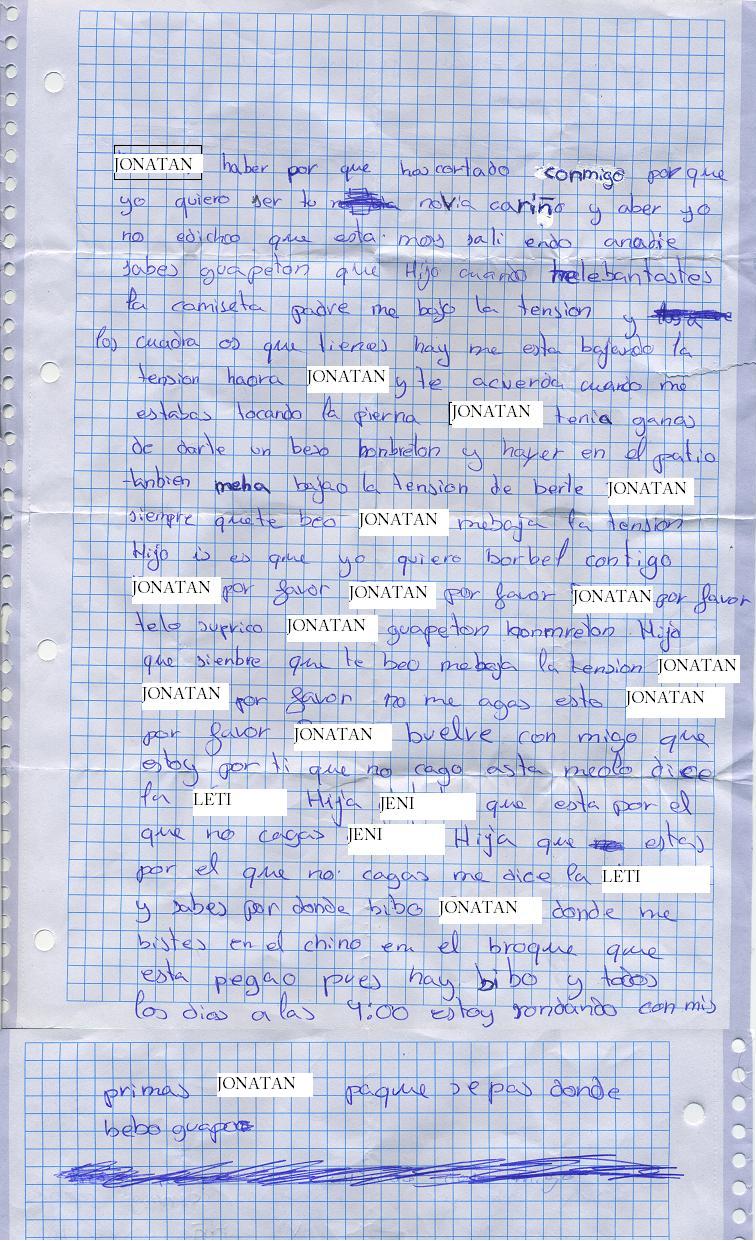 JONATAN haber por que has cortado conmigo por que
yo quiero ser tu novia cariño y aber yo
no edicho que esta mos sali endo anabie
sabes guapeton que Hijo cuando me lebantastes
la camiseta padre me bajo la tension y
los cuadra os que tienes hay me esta bajando la
tension haora JONATAN y te acuerda cuando me
estabas tocando la pierna JONATAN tenia ganas
de darte un beso honbreton y hayer en el patio
tanbien meha bajao la tension de berte JONATAN
siempre que te beo JONATAN mebaja la tension
Hijo is es que yo quiero borbel contigo
JONATAN por favor JONATAN por favor JONATAN por favor
telo suprico JONATAN guapeton honmreton Hijo
que sienbre que te beo mebaja la tension JONATAN
JONATAN por favor no me agas esto JONATAN
por favor JONATAN buelve con migo que
estoy por ti que no cago asta melo dice
la LETI Hija JENI que esta por el
que no cagas JENI Hija que estas
por el que no cagas me dice la LETI
y sabes por donde bibo JONATAN donde me
bistes en el chino em el broque que
esta pegao pues hay bibo y todos
los dias a las 9:00 estoy rondando con mis
primas JONATAN paque sepas donde
bebo guapo